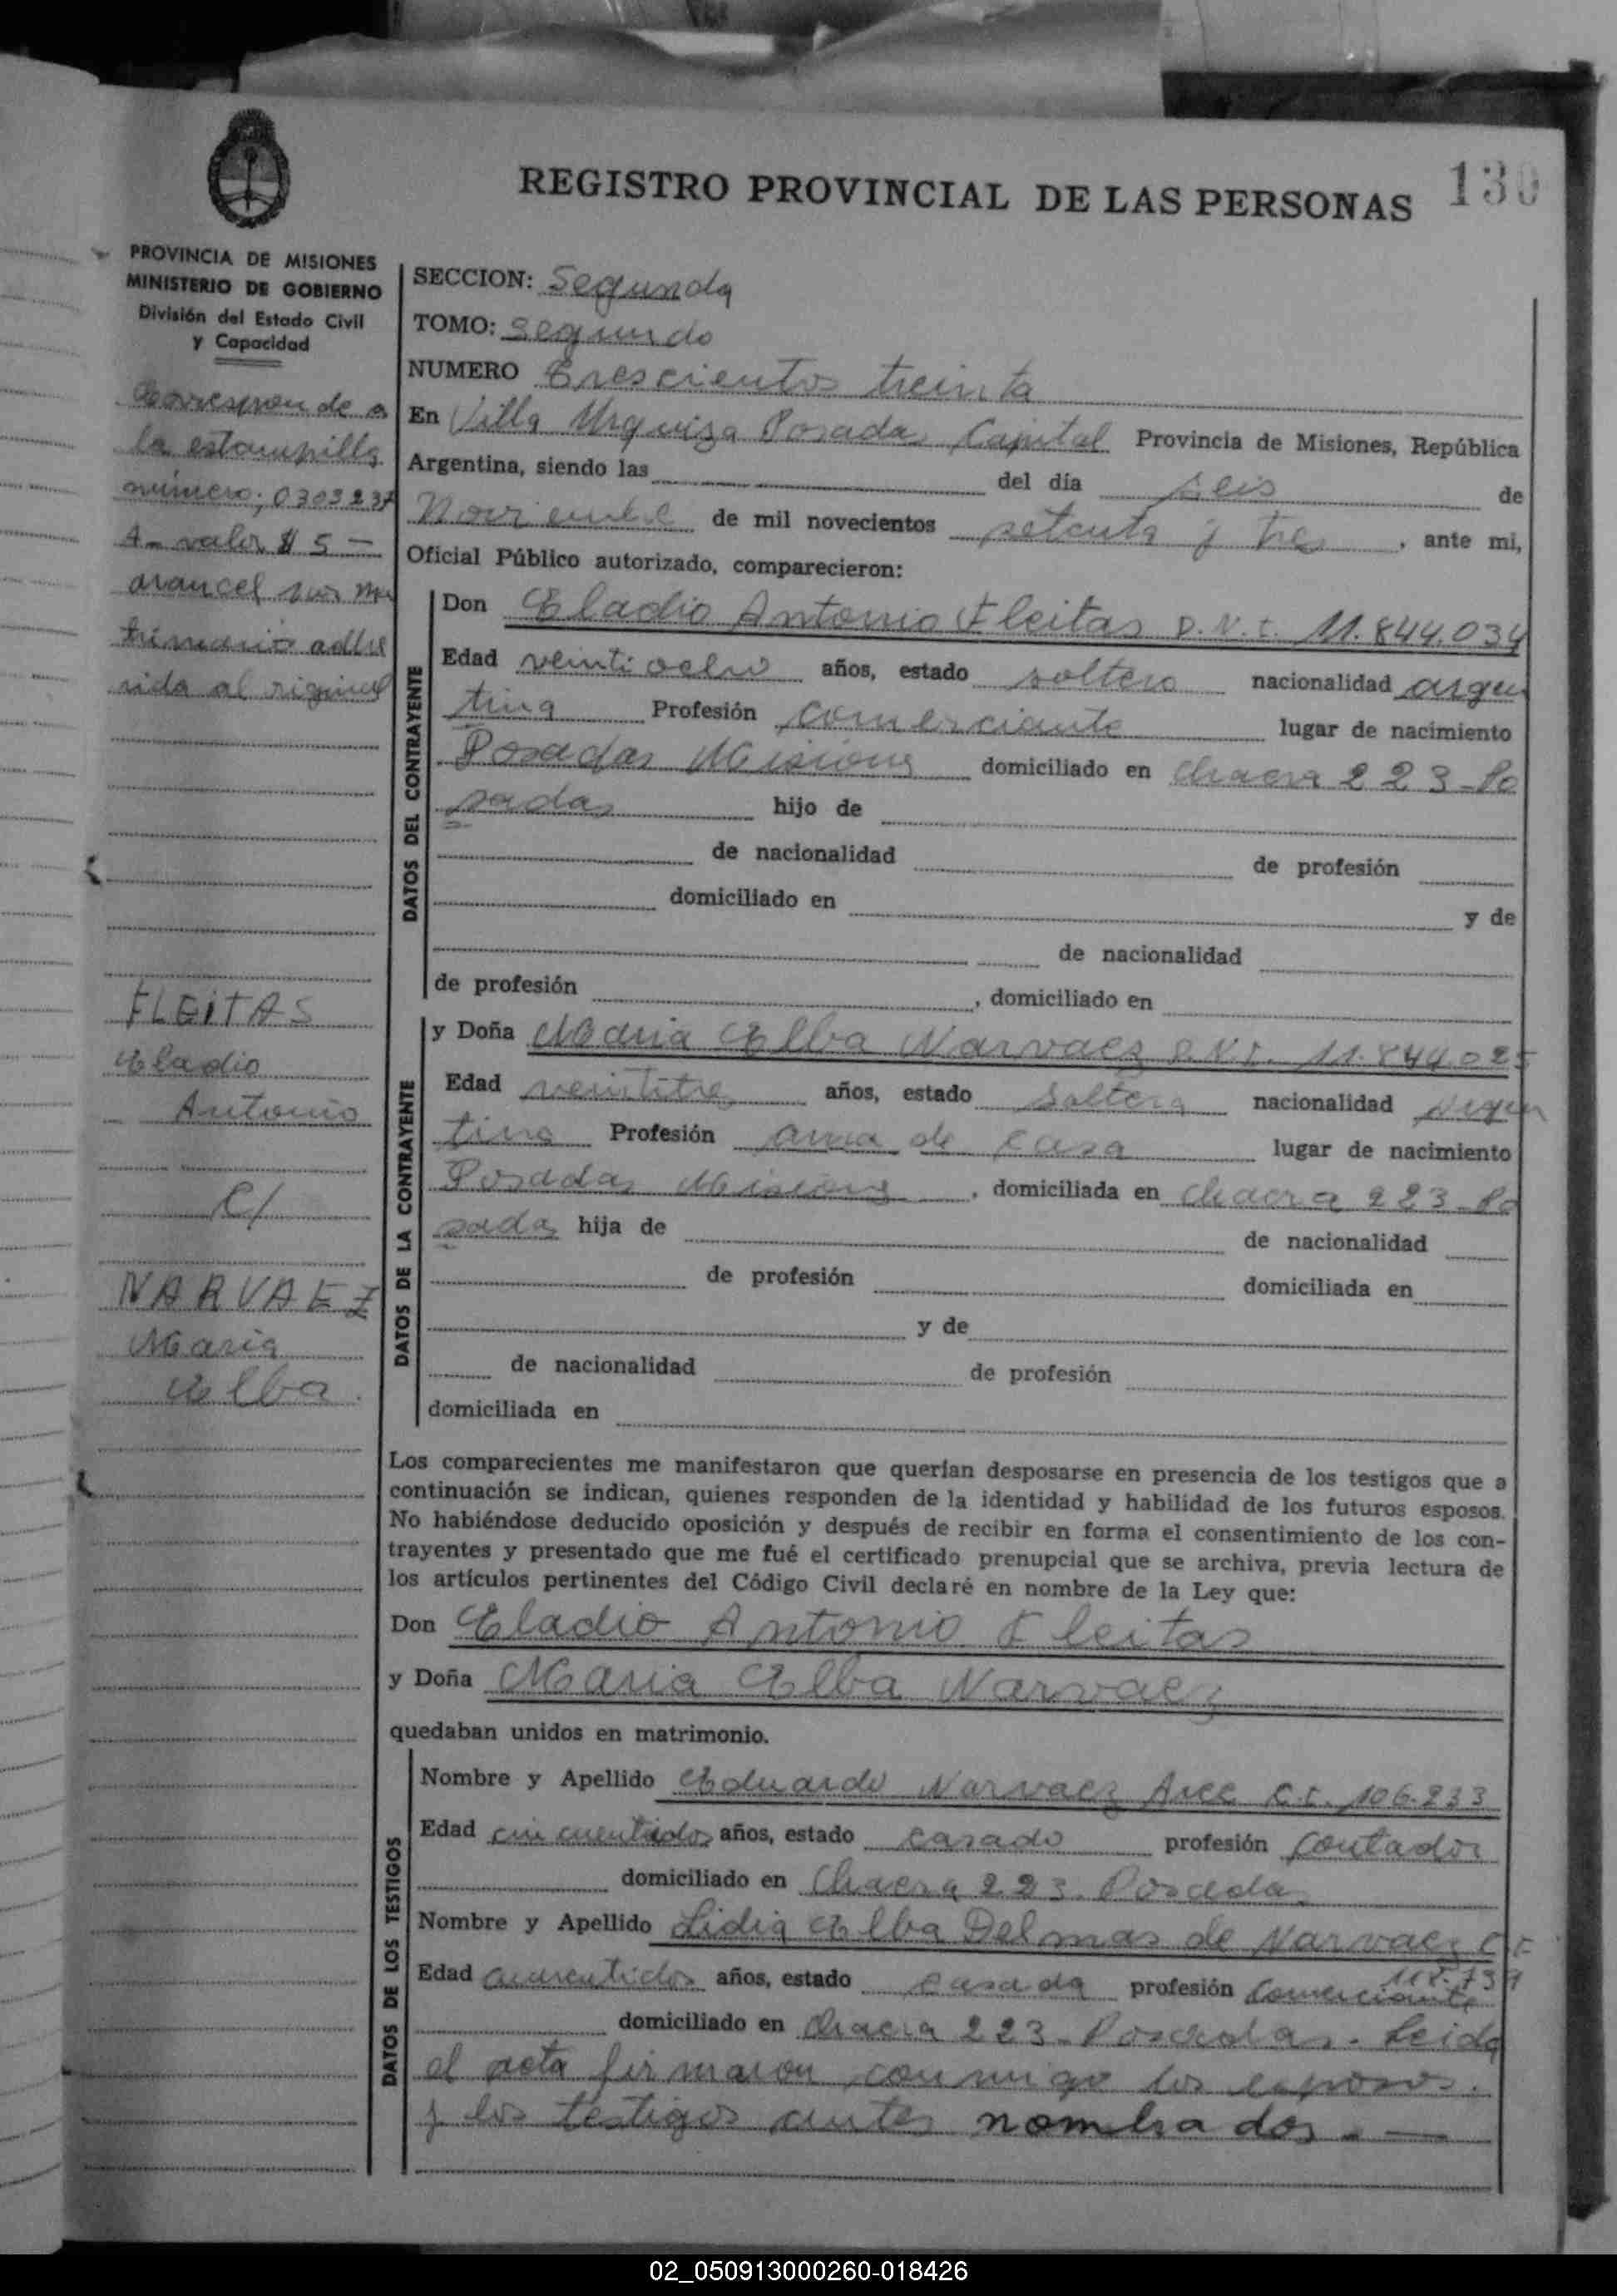 REGISTRO PROVINCIAL DE LAS PERSONAS 130
PROVINCIA DE MISIONES
MINISTERIO DE GOBIERNO
División del Estado Civil
y Capacidad
Corresponde a
la estampilla
número; 0309237
A- valor $ 5 —
arancel por ma
trimonio adhe
rida al original
FLEITAS
Eladio
Antonio
C/
NARVAEZ
Maria
Elba.
SECCION: Segunda
TOMO: Segundo
NUMERO Trescientos treinta
En Villa Urquiza Posadas Capital Provincia de Misiones, República
Argentina, siendo las del día seis de
Noviembre de mil novecientos setenta y tres, ante mi,
Oficial Público autorizado, comparecieron:
DATOS DEL CONTRAYENTE
Don Eladio Antonio Fleitas D.N.I. 11.844.034
Edad veintiocho años, estado soltero nacionalidad argen
tina Profesión comerciante lugar de nacimiento
Posadas Misiones domiciliado en Chacra 223-Po
sadas hijo de
de nacionalidad de profesión
domiciliado en y de
de nacionalidad
de profesión , domiciliado en
DATOS DE LA CONTRAYENTE
y Doña Maria Elba Narvaez D.N.I. 11.844.025
Edad veintitres años, estado Soltera nacionalidad Argen
tina Profesión ama de casa lugar de nacimiento
Posadas Misiones, domiciliada en Chacra 223-Po
sadas hija de de nacionalidad
de profesión domiciliada en
y de
de nacionalidad de profesión
domiciliada en
Los comparecientes me manifestaron que querían desposarse en presencia de los testigos que a
continuación se indican, quienes responden de la identidad y habilidad de los futuros esposos.
No habiéndose deducido oposición y después de recibir en forma el consentimiento de los con-
trayentes y presentado que me fué el certificado prenupcial que se archiva, previa lectura de
los artículos pertinentes del Código Civil declaré en nombre de la Ley que:
Don Eladio Antonio Fleitas
y Doña Maria Elba Narvaez
quedaban unidos en matrimonio.
DATOS DE LOS TESTIGOS
Nombre y Apellido Eduardo Narvaez Arce C.I. 106.233
Edad cincuentidos años, estado casado profesión Contador
domiciliado en Chacra 223. Posadas
Nombre y Apellido Lidia Elba Delmas de Narvaez C.I.
Edad cuarentidos años, estado casada profesión Comerciante
domiciliado en Chacra 223- Posadas. Leida
el acta firmaron conmigo los esposos.
y los testigos antes nombrados. —
02_050913000260-018426